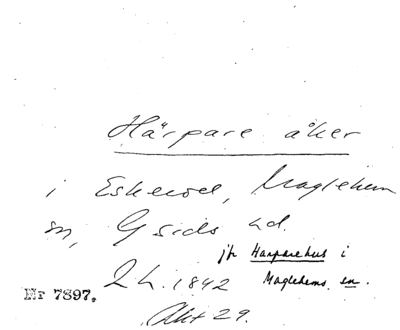 Härpare åker
i Eskeröd, Maglehem
sn, G sids hd.
jfr Harparehus i
Maglehems sn.
LL. 1842
Nr 7897.
Akt 29.